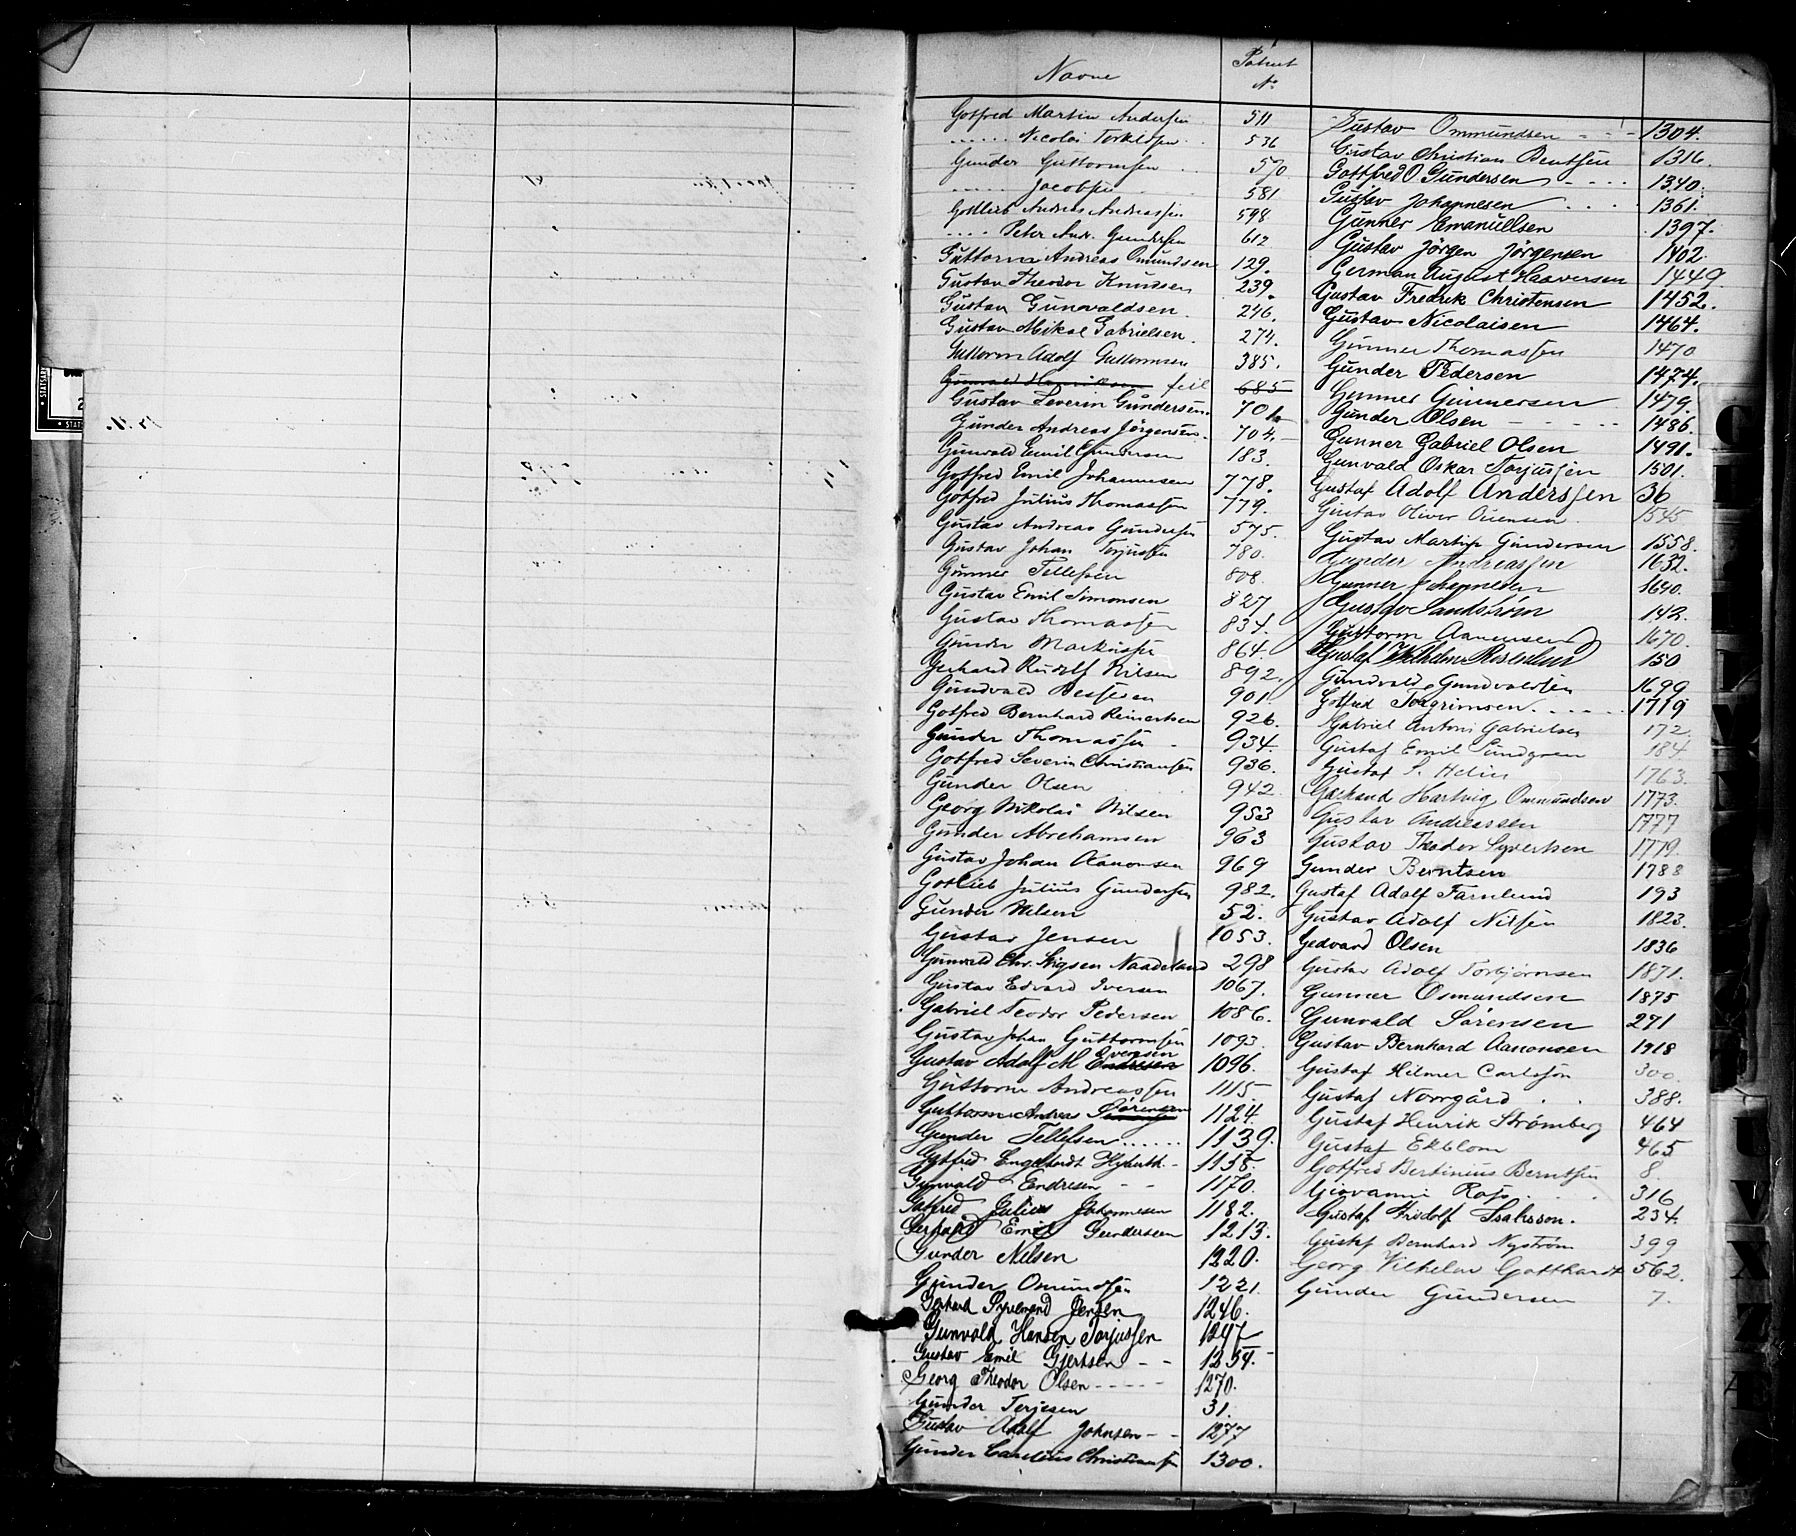 Navne Patent No
Gotfred Martin Andersen 511
..... Nicolai Torkildsen 536
Gunder Guttormsen 570
..... Jacobsen 581
Gottlieb Andreas Andreassen 598
.... Peter Andr. Gundersen 612
Guttorm Andreas Omundsen 129.
Gustav Theodor Knudsen 239.
Gustav Gunvaldsen. 246.
Gustav Mikal Gabrielsen. 274.
Guttorm Adolf Guttormsen 385.
Gunvald Henriksen feil 685
Gustav Severin Gundersen. 701
Gunder Andreas Jörgensen. 704.
Gunvald Emil Gundersen 183.
Gotfred Emil Johannesen 778.
Gotfred Julius Thomassen 779.
Gustav Andreas Gundersen 575.
Gustav Johan Terjussen 780.
Gunner Tellefsen 808.
Gustav Emil Simonsen 827
Gustav Thomassen 834.
Gunder Markussen 864.
Gerhard Rudolf Nilsen 892.
Gundvald 901.
Gotfred Bernhard Reinertsen 926.
Gunder Thomassen 934.
Gotfred Severin Christiansen 936.
Gunder Olsen 942
Georg Nikolai Nilsen 953
Gunder Abrehamsen 963
Gustav Johan Aanonsen 969
Gotlieb Julius Gundersen 982.
Gunder Nilsen 52.
Gustav Jensen 1053.
Gunvald Chr. Stigsen Naadeland 298
Gustav Edvard Iversen 1067.
Gabriel Teodor Pedersen 1086.
Gustav Johan Guttormsen 1093.
Gustav Adolf M Evensen 1096.
Guttorm Andreassen 1115.
Guttorm Andreas Sörensen 1124.
Gunder Tellefsen...... 1139.
Gotfred Engelhardt 1158.
Gunvald Endresen - - 1170.
Gotfred Julius Johannesen 1182.
Gerhard Emil Gundersen 1213.
Gunder Nilsen 1220.
Gunder Omundsen 1221.
Gerhard Jensen 1246.
Gunvald Hansen Torjussen 1247
Gustav Emil Gjertsen - - 1254.
Georg Theodor Olsen - - - - - 1270.
Gunder Terjesen 31.
Gustav Adolf Johnsen - - 1277
Gunder Carelius Christiansen 1300.
Gustav Ommundsen - - - 1304.
Gustav Christian Bentsen 1316.
Gottfred O. Gundersen - - - - 1340.
Gustav Johannesen .... 1361.
Gunner Emanuellsen 1397.
Gustav Jörgen Jörgensen 1402.
German August Haaversen 1449.
Gustav Fredrik Christensen 1452.
Gustav Nicolaisen 1464.
Gunner Thomassen 1470
Gunder Pedersen 1474.
Gunner Gunnersen 1479.
Gunder Olsen - - - - - 1486.
Gunner Gabriel Olsen 1491.
Gunvald Oskar Torjussen 1501.
Gustaf Adolf Anderssen 36
Gustav Oliver 1545
Gustav Martin Gundersen 1558.
Gunder Andreassen 1632.
Gunner Johannesen 1640.
Gustav Sandstrøm 142.
Guttorm Aanensen 1670.
Gustaf Wilhelm 150
Gundvald Gundvaldsen 1699
Gotfred Torgrimsen. - - - - - 1719
Gabriel Anton Gabrielsen 172
Gustaf Emil Sundgren 184
Gustaf S. Helin 1763.
Hartvig Ommundsen 1773.
Gustav Andreassen 1777
Gustav Theodor Syvertsen 1779.
Gunder Berntsen 1788
Gustaf Adolf Färnlund 193
Gustav Adolf Nilsen 1823.
Gedvard Olsen 1836
Gustav Adolf Torbjørnsen 1871.
Gunner Osmundsen 1875
Gunvald Sørensen 271
Gustav Bernhard Aanonsen 1918
Gustaf Hilmer Carlsson 300.
Gustaf Norrgård . . 388.
Gustaf Henrik Strømberg 464
Gustaf Ekblom 465
Gotfred Bertinius Berntsen 8.
Giovanni . . . 316
Gustaf Fridolf Isaksson. 234.
Gustaf Bernhard Nystrøm 399
Georg Vilhelm Gotthardt 562.
Gunder Gundersen 7.